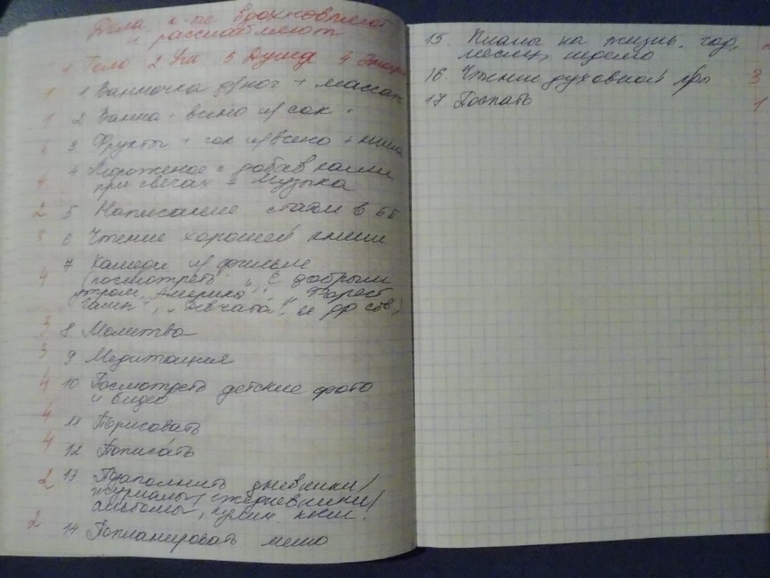 Дела к-ые вдохновляют
и расслабляют
1 Тело 2 Ум 3 Душа 4 Эмоции
1 1 Ванночка д/ног + массаж
1 2 Ванна + вино и/ сок.
1 3 Фрукты + сок и/вино + книга
4 4 Мороженое с добавками
при свечах + музыка
2 5 Написание статьи в
3 6 Чтение хорошей книги
4 7 Комеди и/ фильм
(посмотреть "С добрым
утром, Америка", "Форест
Гамп", "Девчата", и др сов.)
3 8 Молитва
3 9 Медитация
4 10 Посмотреть детские фото
и видео
4 11 Порисовать
4 12 Пописать
2 13 Позаполнять дневники/
журналы/ ежедневники/
альбомы, кулин книги.
2 14 Попланировать меню
15. Планы на жизнь, год,
месяц, неделю 2
16. Чтение духовной л-ры 3
17 Поспать 1